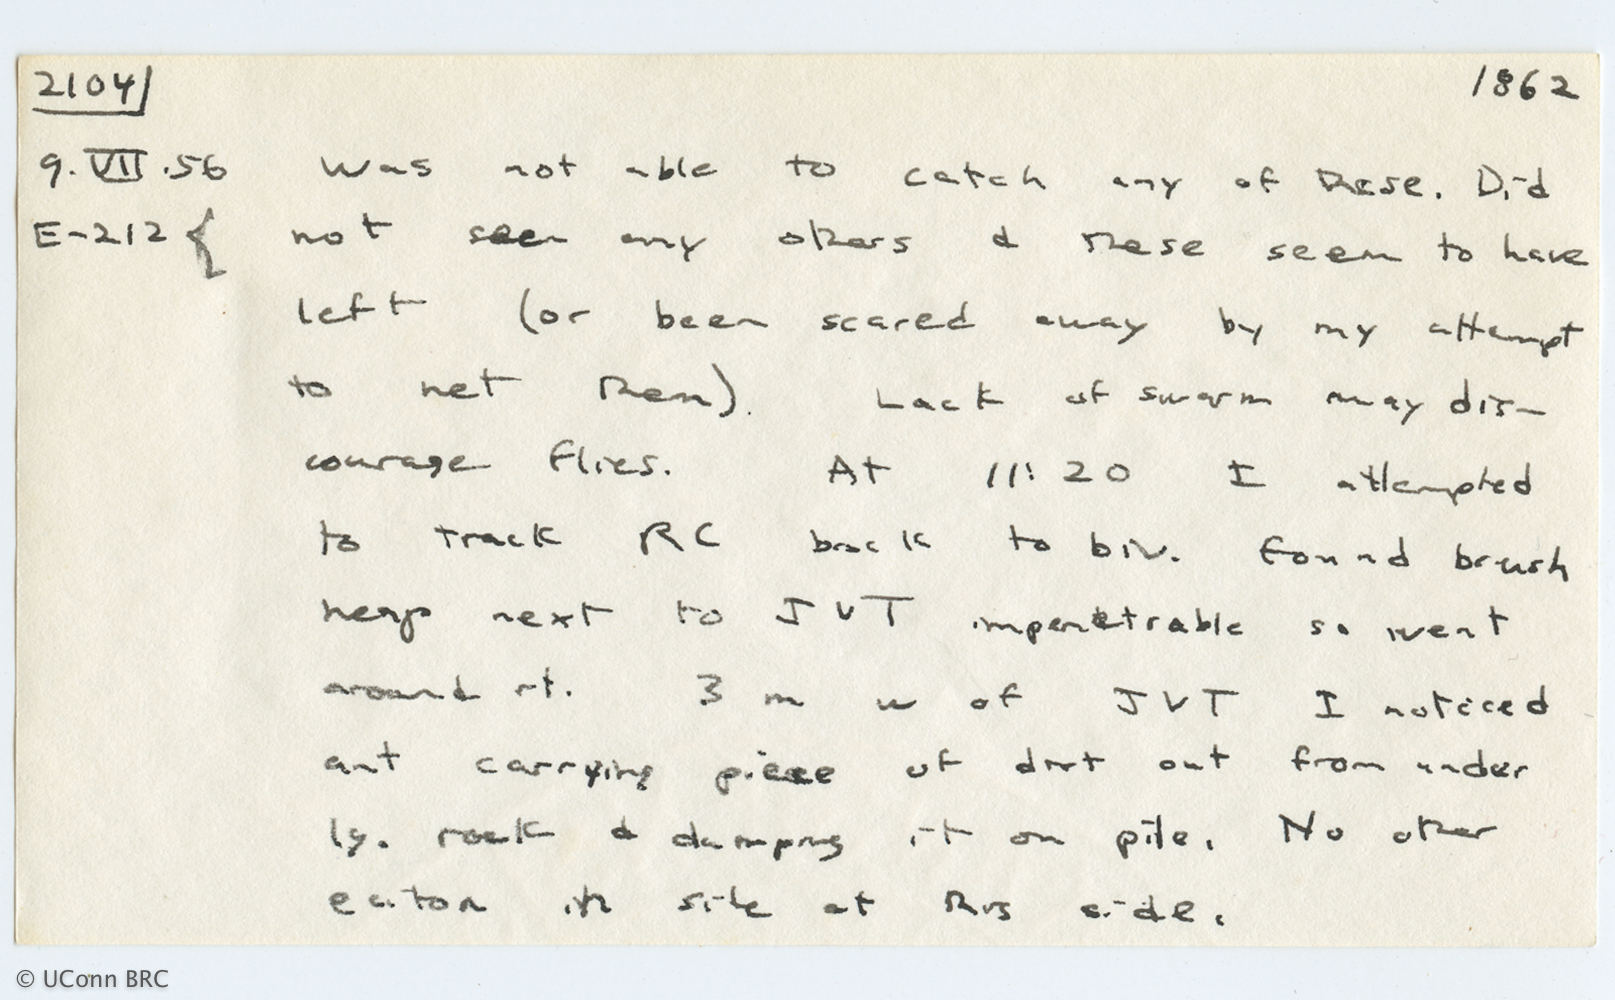 2104 1862
9.VII.56 Was not able to catch any of these. Did
E-212 { not seen any others & these seem to have
left (or been scared away by my attempt
to net them). Lack of swarm may dis-
courage flies. At 11:20 I attempted
to track RC back to biv. Found brush
heap next to JVT impenetrable so went
around rt. 3 m w of JVT I noticed
ant carrying piece of dirt out from under
lg. rock & dumping it on pile. No other
eciton in site at this side.
© UConn BRC